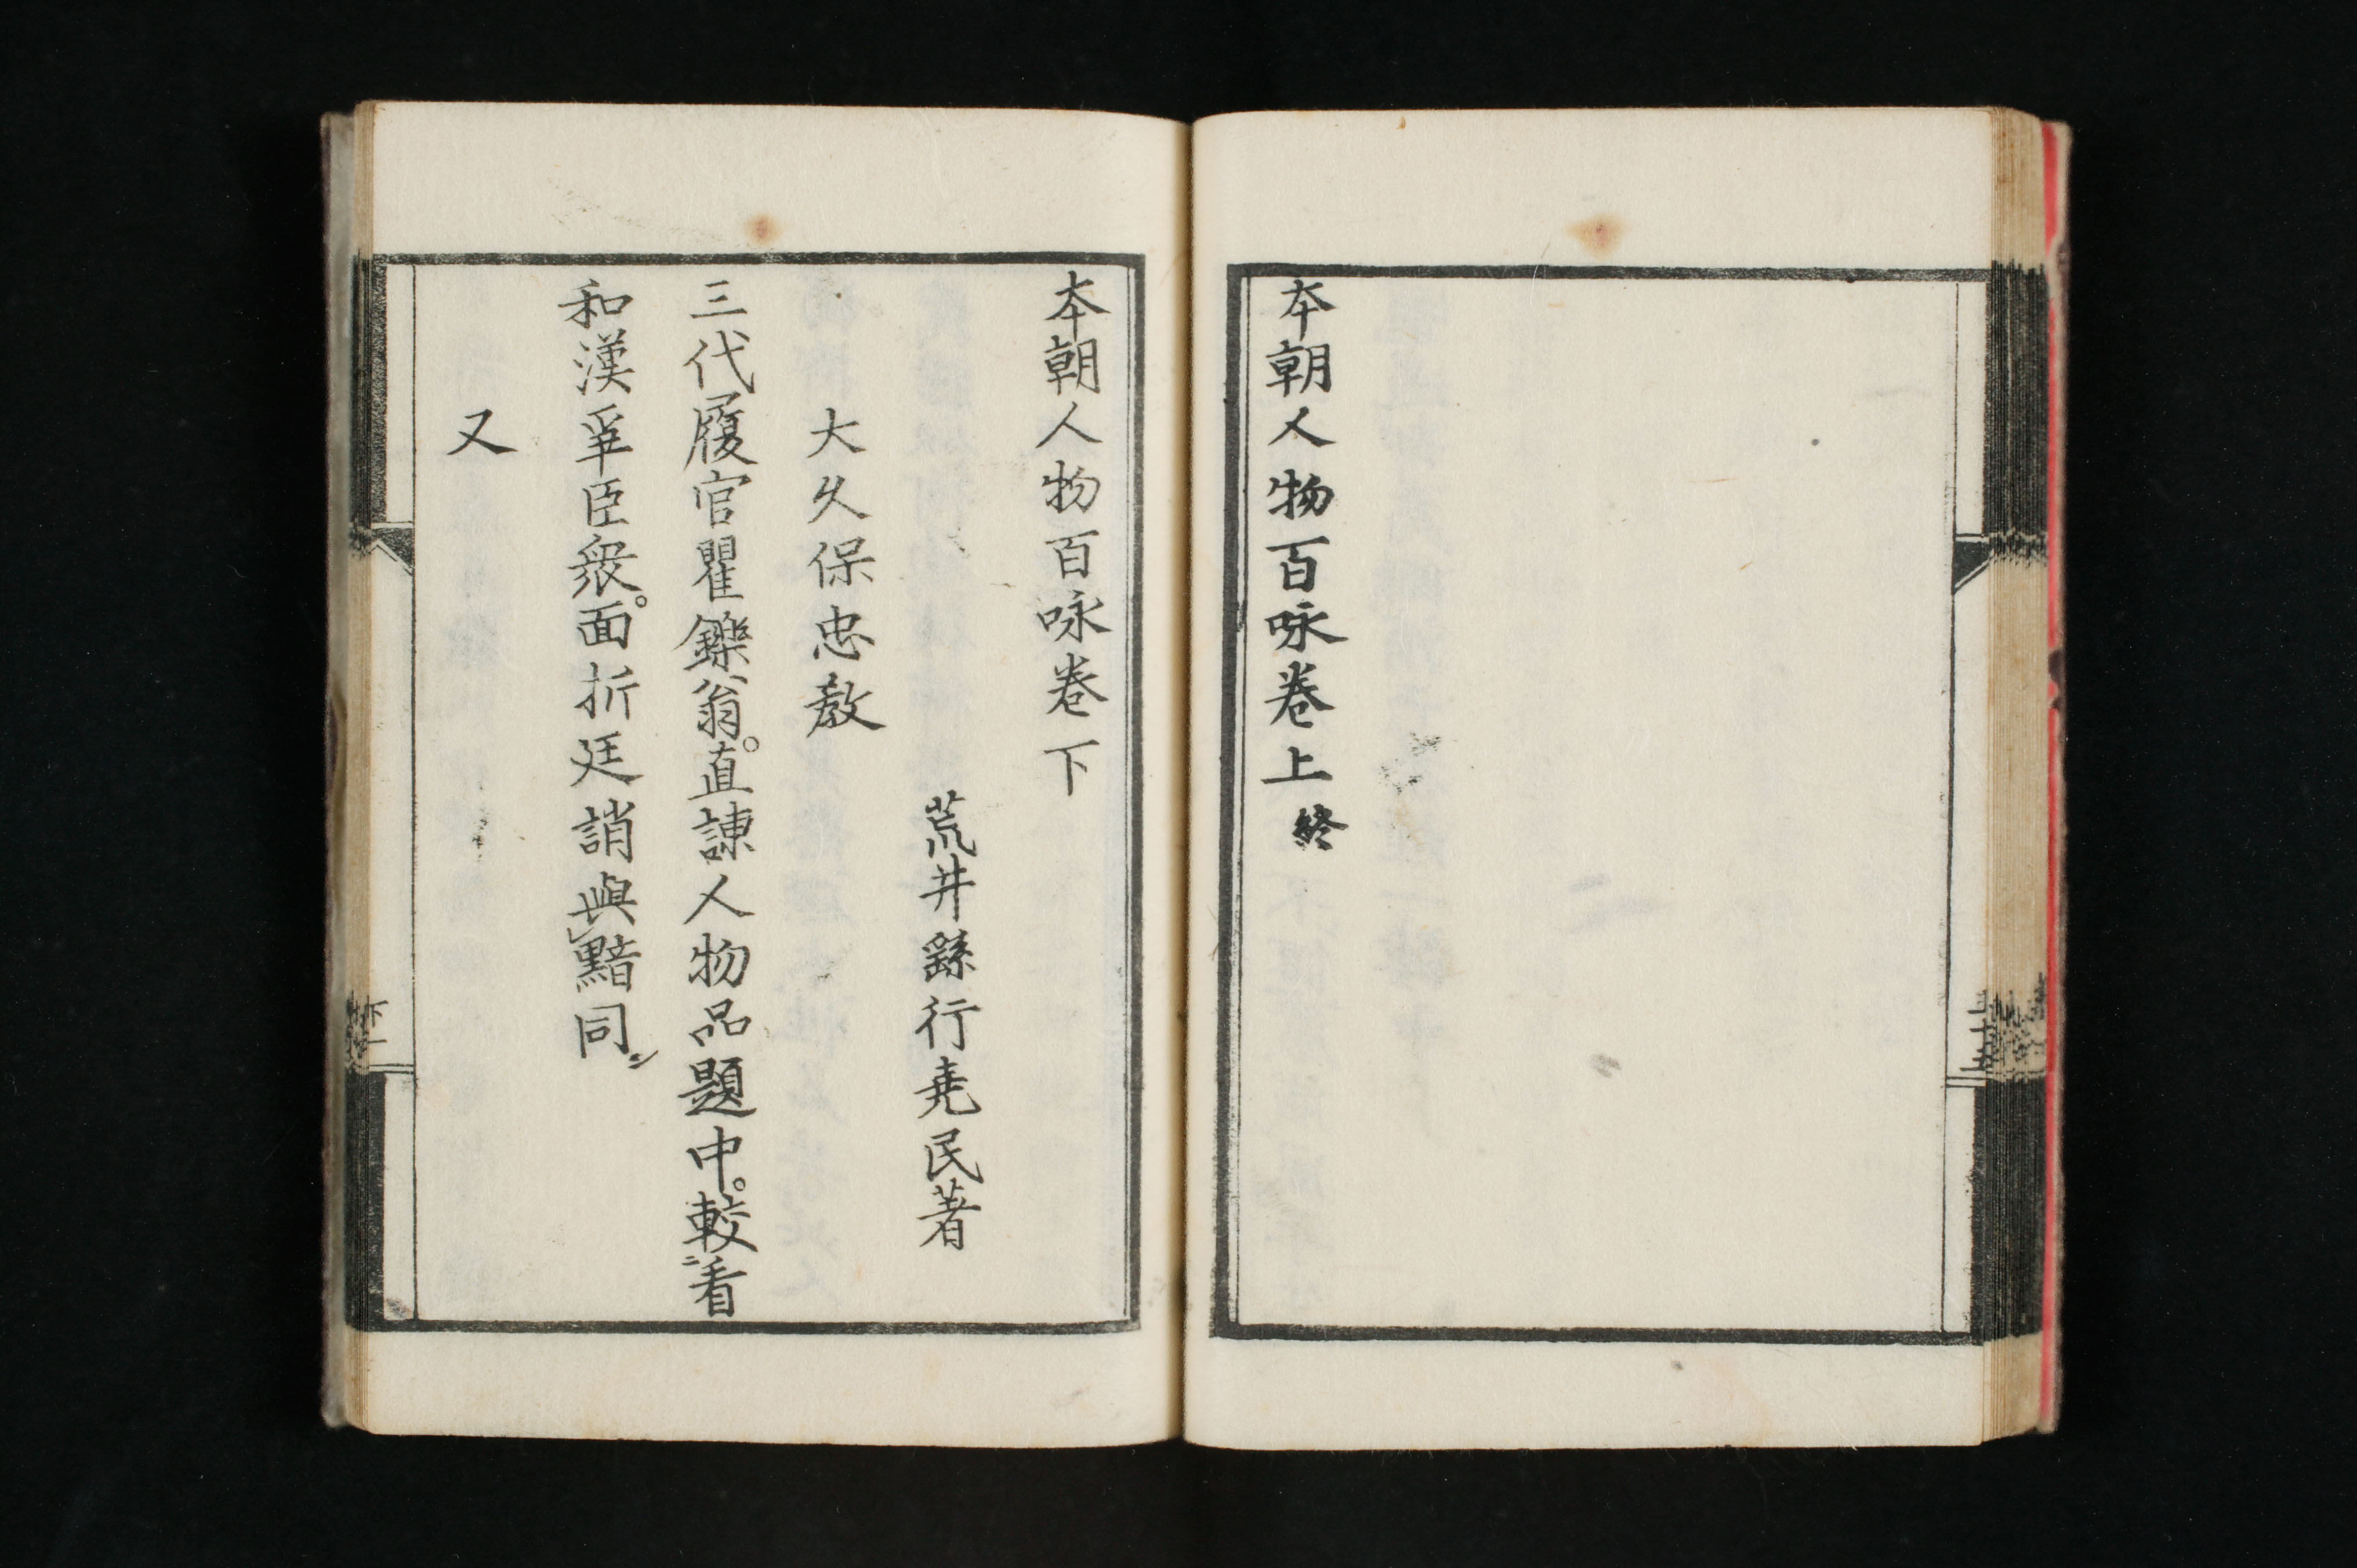 本朝人物百咏巻上終
本朝人物百咏巻下
荒井繇行堯民著
大久保忠敎
三代履官矍鑠翁。直諌人物品題中。較ニ看
和漢爭臣衆。面折廷誚與黯同シ
又
下
一